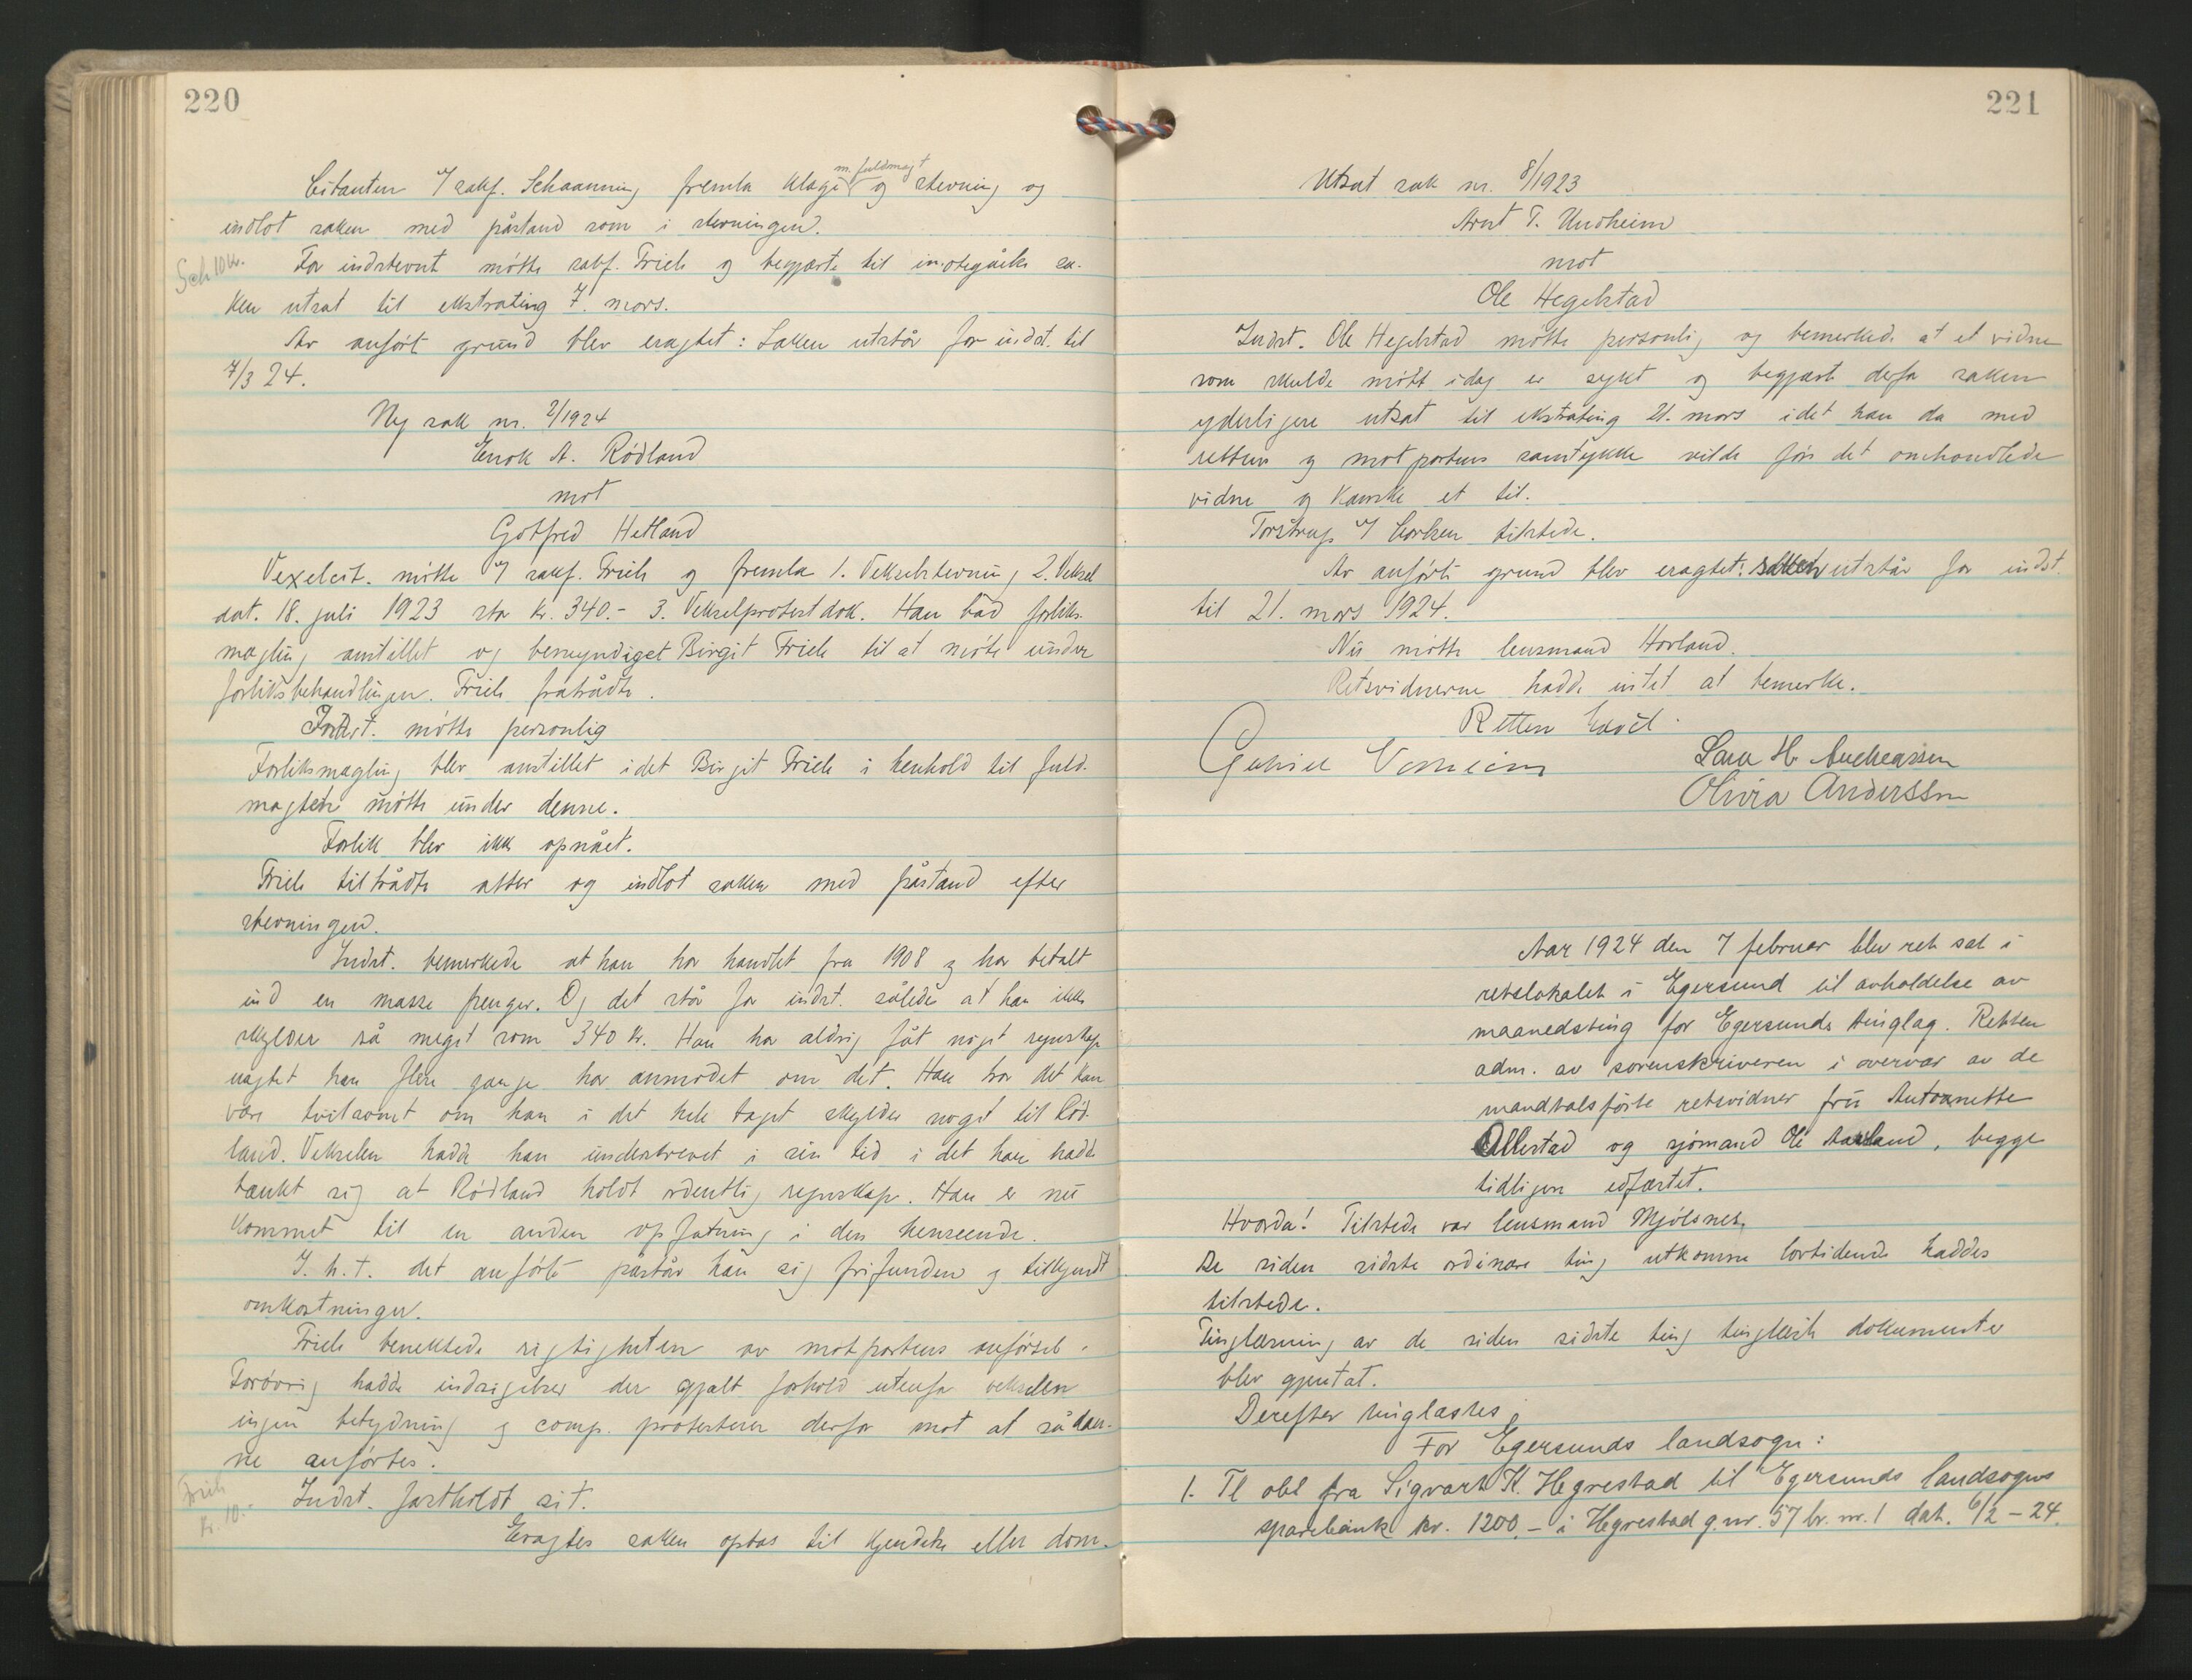 220
Citanten v/ sakf. Schaanning fremla klage m. fuldmagt og stevning og
indlot saken med påstand som i stevningen.
Sch 10 kr.
For indstevnt møtte sakf. Friele og begjærte til imøtegåelse sa-
ken utsat til ekstrating 7. mars.
Av anført grund blev eragtet: Saken utstår for indst. til
7/3 24.
Ny sak nr. 2/1924
Enok A. Rødland
mot
Gotfred Hetland
Vexelcit. møtte v/ sakf. Friele og fremla 1. Vekselstevning 2. Veksel
dat. 18. juli 1923 stor kr. 340.- 3. Vekselprotestdok. Han bad forliks-
mægling anstillet og bemyndiget Birgit Friele til at møte under
forliksbehandlingen. Friele fratrådte.
Indst. møtte personlig
Forliksmægling blev anstillet idet Birgit Friele i henhold til fuld-
magten møtte under denne.
Forlik blev ikke opnået.
Friele tiltrådte atter og indlot saken med påstand efter
stevningen.
Indst. bemerkede at han har handlet fra 1908 og har betalt
ind en masse penger. Og det står for indst. således at han ikke
skylder så meget som 340 kr. Han har aldrig fåt noget regnskap
uagtet han flere gange har anmodet om det. Han tror det kan
være tvilsomt om han i det hele taget skylder noget til Rød-
land. Vekselen hadde han underskrevet i sin tid i det han hadde
tænkt sig at Rødland holdt ordentlig regnskap. Han er nu
kommet til en anden opfatning i den henseende.
I. h. t. det anførte påstår han sig frifunden og tilkjendt
omkostninger.
Friele benektede rigtigheten av motpartens anførsel.
Forøvrig hadde indsigelser der gjalt forhold utenfor vekselen
ingen betydning og comp. protesterer derfor mot at sådan-
ne anførtes.
Friele
kr. 10.-
Indst. fastholdt sit.
Eragtes saken optas til kjendelse eller dom.
221
Utsat sak nr. 8/1923
Arnt T. Undheim
mot
Ole Hegelstad
Indst. Ole Hegelstad møtte personlig og bemerkede at et vidne
som skulde møtt idag er sykt og begjært derfor saken
yderligere utsat til ekstrating 21. mars idet han da med
rettens og motpartens samtykke vilde føre det omhandlede
vidne og kanske et til.
Torstrup v/ Carlsen tilstede.
Av anførte grund blev eragtet: saken utstår for indst.
til 21. mars 1924.
Nu møtte lensmand Horland.
Retsvidnerne hadde intet at bemerke.
Retten hævet.
Sara H. Andreassen
Olivia Anderssen
Aar 1924 den 7 februar blev ret sat i
retslokalet i Egersund til avholdelse av
maanedsting for Egersunds tinglag. Retten
adm. av sorenskriveren i overvær av de
mandtalsførte retsvidner frü Antoanette
Ollestad og sjømand Ole Aarland, begge
tidligere edfæstet.
Hvorda! Tilstede var lensmand Mjølsnes.
De siden sidste ordinære ting utkomne lovtidende haddes
tilstede.
Tinglæsning av de siden sidste ting tinglæste dokumenter
blev gjentat.
Derefter tinglæstes:
For Egersunds landsogn:
1. Tl obl fra Sigvart K. Hegrestad til Egersunds landsogns
sparebank kr. 1200.- i Hegrestad g.nr. 57 br. nr. 1 dat. 6/2-24.